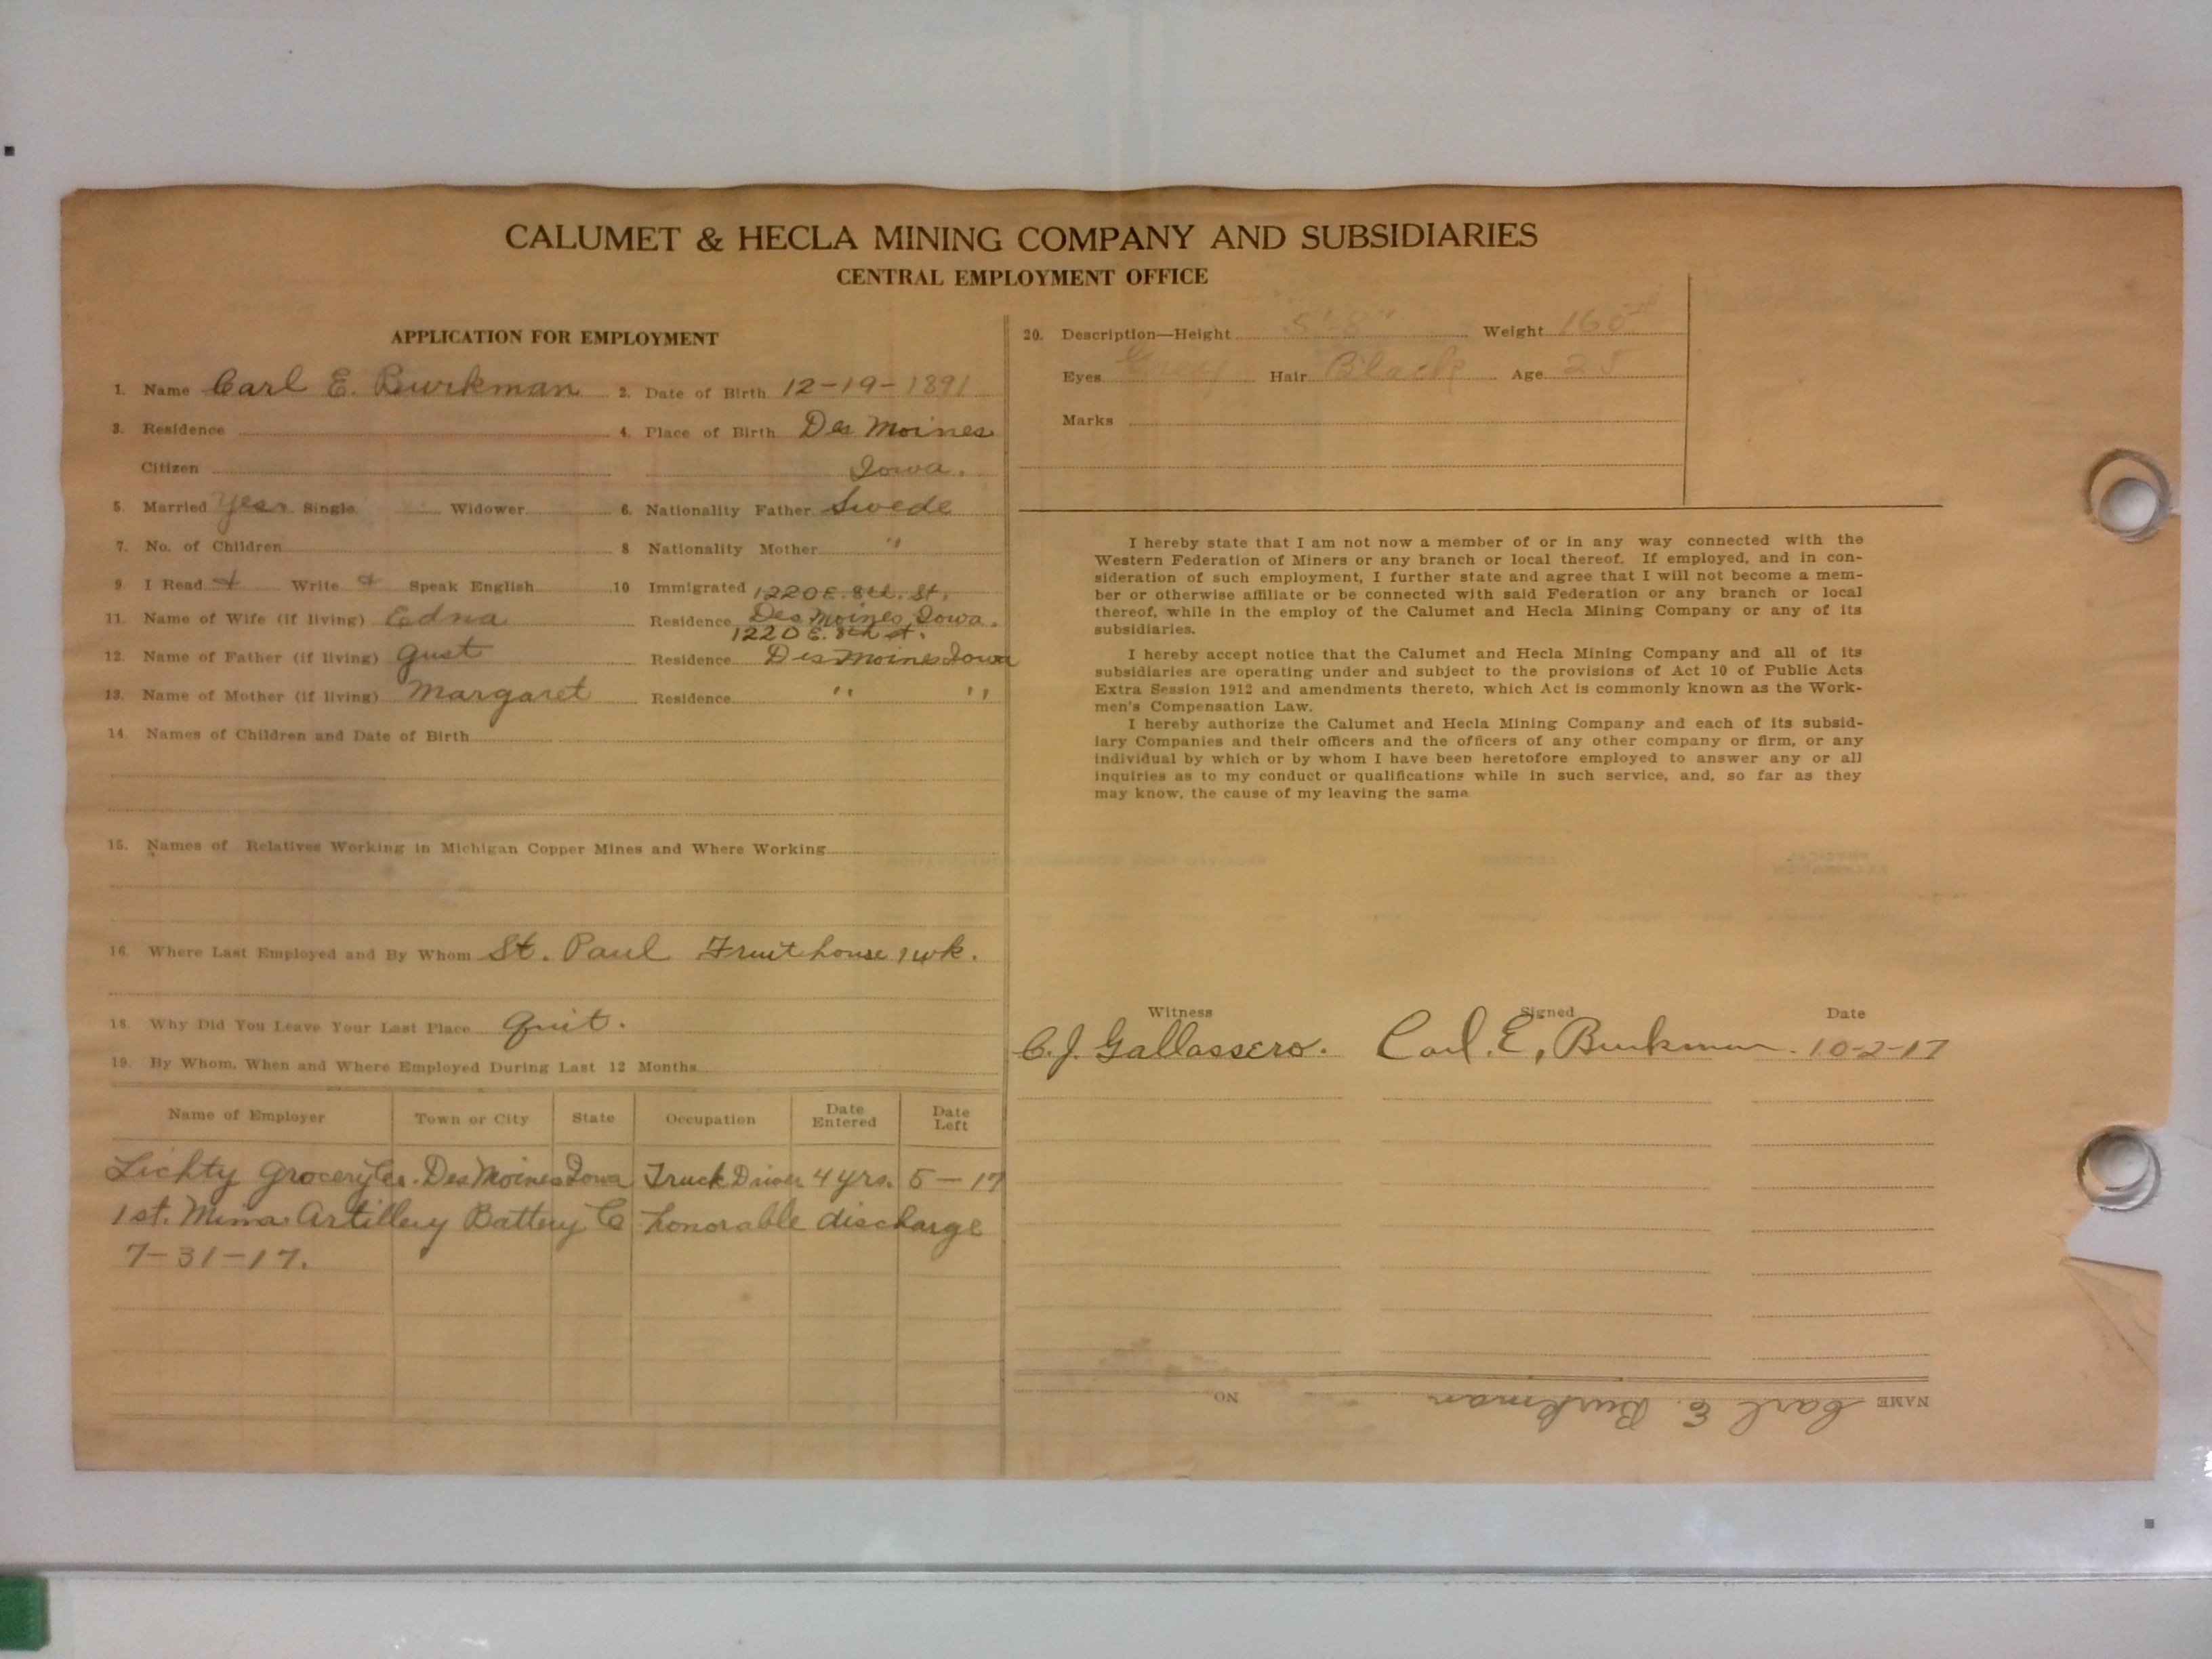 CALUMET & HECLA MINING COMPANY AND SUBSIDIARIES
CENTRAL EMPLOYMENT OFFICE
APPLICATION FOR EMPLOYMENT
1. Name Carl E. Burkman 2. Date of Birth 12-19-1891
3. Residence 4. Place of Birth Des Moines
Citizen Iowa.
5. Married Yes. Single Widower 6. Nationality Father Swede
7. No. of Children 8 Nationality Mother "
9. I Read & Write & Speak English 10 Immigrated
1220 E. 8th. St.
11. Name of Wife (if living) Edna Residence Des Moines, Iowa.
1220 E. 8th St.
12. Name of Father (if living) Gust Residence Des Moines Iowa
13. Name of Mother (if living) Margaret Residence " "
14. Names of Children and Date of Birth
15. Names of Relatives Working in Michigan Copper Mines and Where Working
16. Where Last Employed and By Whom St. Paul Fruit house 1 wk.
18. Why Did You Leave Your Last Place Quit.
19. By Whom, When and Where Employed During Last 12 Months
Name of Employer Town or City State Occupation Date Entered Date Left
Lichty Grocery Co. Des Moines Iowa Truck Driver 4 yrs. 5-17
1st. Minn. Artillery Battery C honorable discharge
7-31-17.
20. Description—Height 5'-8" Weight 160#
Eyes Grey Hair Black Age 25
Marks
I hereby state that I am not now a member of or in any way connected with the
Western Federation of Miners or any branch or local thereof. If employed, and in con-
sideration of such employment, I further state and agree that I will not become a mem-
ber or otherwise affiliate or be connected with said Federation or any branch or local
thereof, while in the employ of the Calumet and Hecla Mining Company or any of its
subsidiaries.
I hereby accept notice that the Calumet and Hecla Mining Company and all of its
subsidiaries are operating under and subject to the provisions of Act 10 of Public Acts
Extra Session 1912 and amendments thereto, which Act is commonly known as the Work-
men's Compensation Law.
I hereby authorize the Calumet and Hecla Mining Company and each of its subsid-
iary Companies and their officers and the officers of any other company or firm, or any
individual by which or by whom I have been heretofore employed to answer any or all
inquiries as to my conduct or qualifications while in such service, and, so far as they
may know, the cause of my leaving the same
Witness Signed Date
C. J. Gallassero. Carl. E, Burkman. 10-2-17
NAME Carl E. Burkman NO